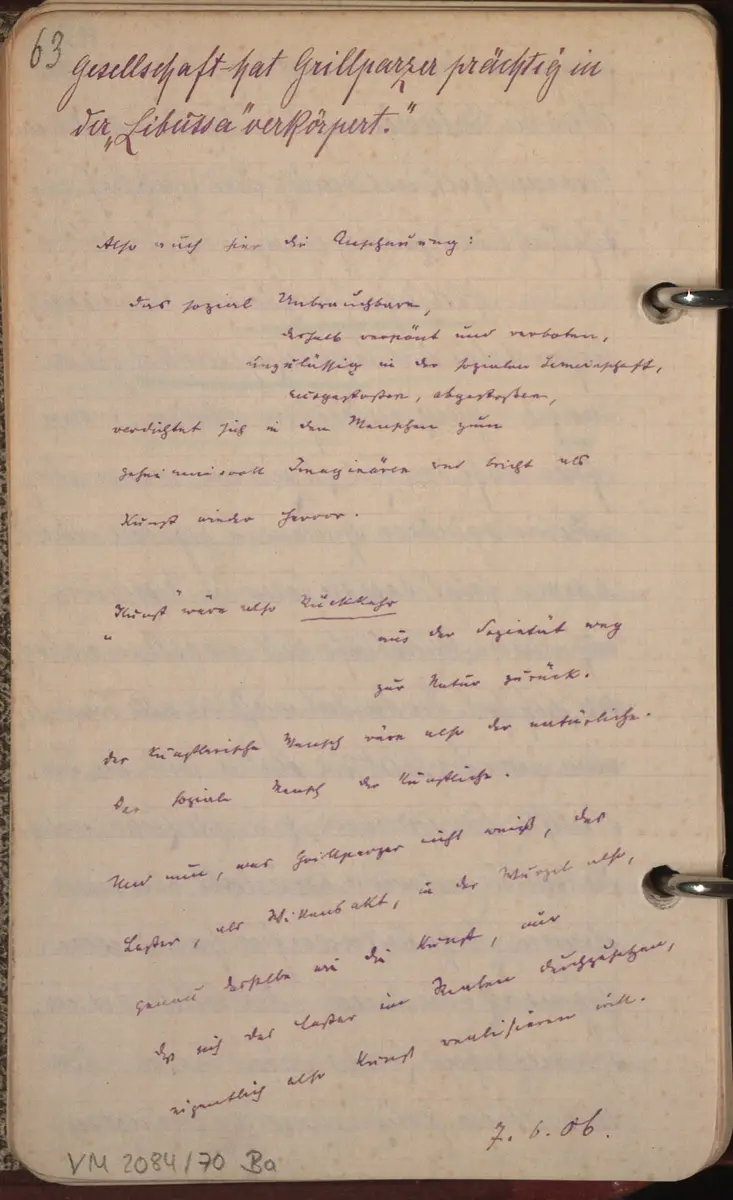 63
Gesellschaft hat Grillparzer prächtig in
der „Libussa“ verkörpert.“
Also auch hier die Anschauung:
das sozial Unbrauchbare,
deshalb verpönt und verboten,
unzulässig in der sozialen Gemeinschaft,
ausgestoßen, abgestoßen,
verdichtet sich in den Menschen zum
geheimnisvoll Imaginären und bricht als
Kunst wieder hervor.
„Kunst“ wäre also Rückkehr
aus der Sozietät weg
zur Natur zurück.
Der künstlerische Mensch wäre also der natürliche.
Der soziale Mensch der künstliche.
Und nun, was Grillparzer nicht weiß, das
Laster, als Willensakt, in der Wurzel also,
genau dasselbe wie die Kunst, nur
daß sich das Laster im Realen durchzusetzen,
eigentlich also Kunst realisieren will.
7. 6. 06.
VM 2084/70 Ba